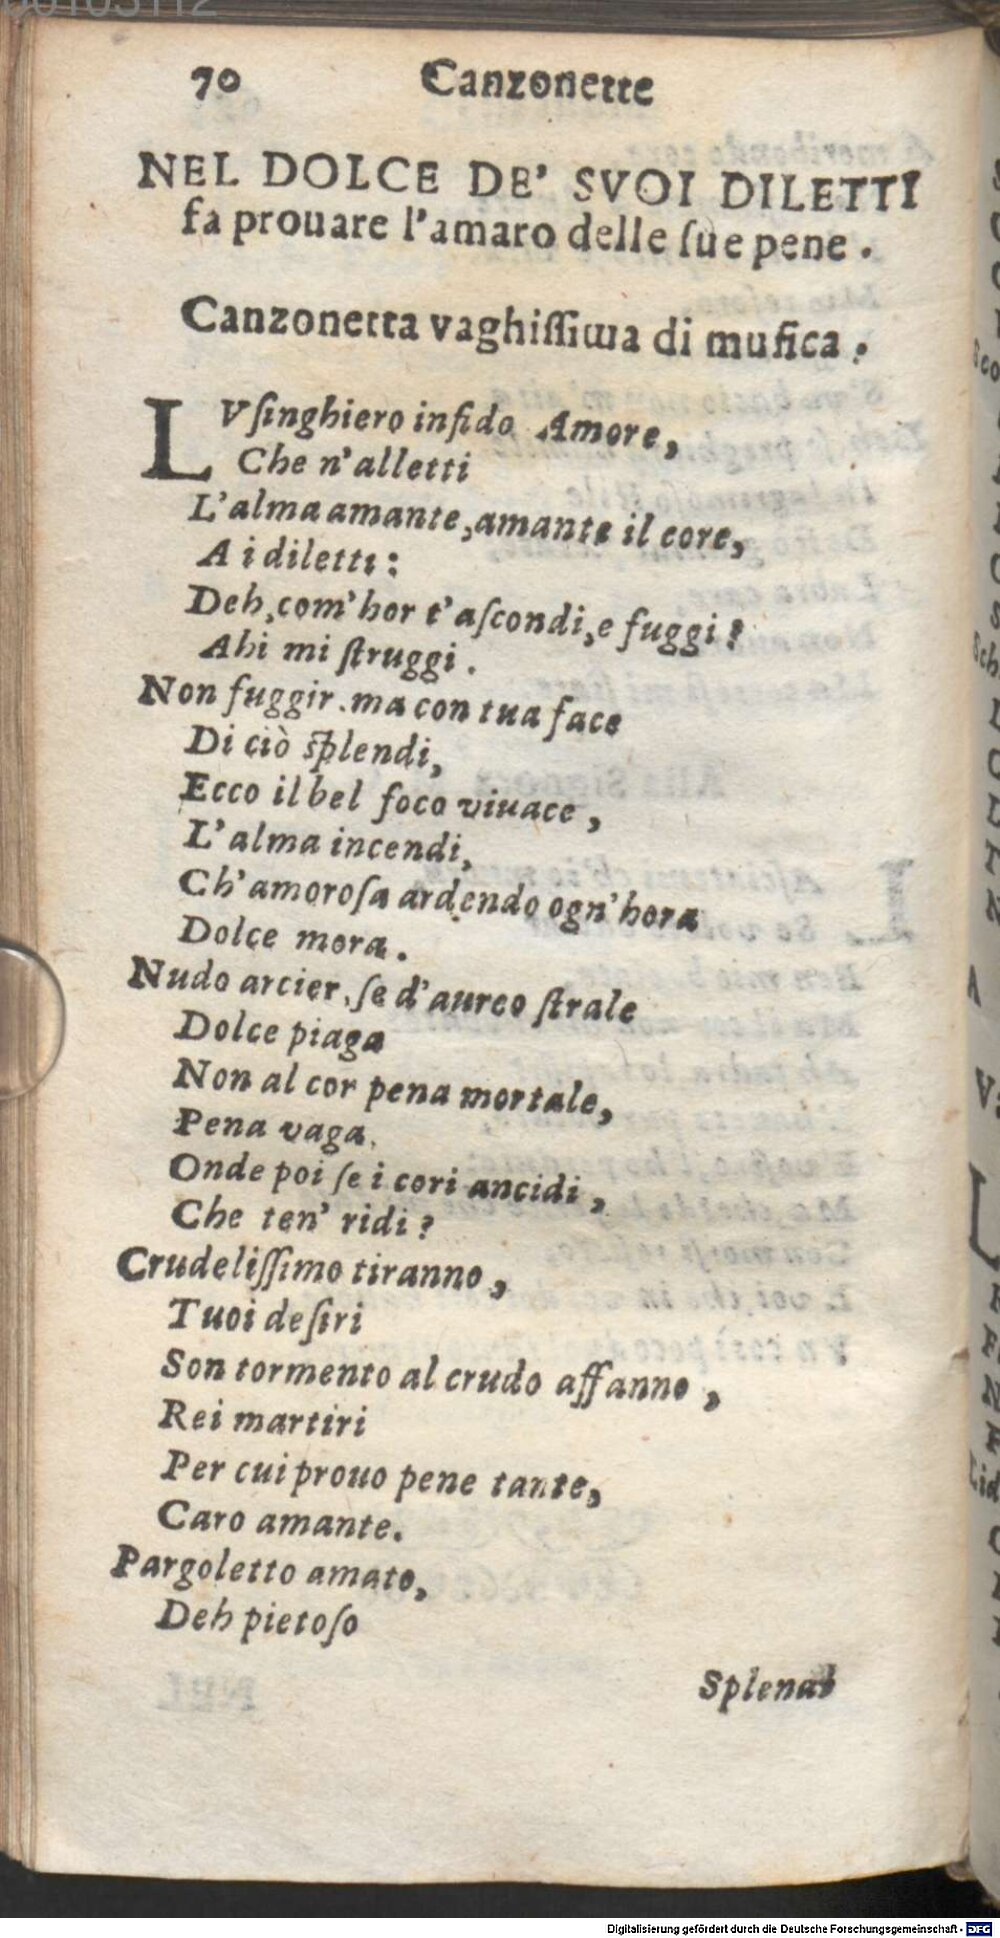 70 Canzonette
NEL DOLCE DE' SVOI DILETTI
fa prouare l'amaro delle ſue pene.
Canzonetta vaghiſſima di muſica.
LVſinghiero infido Amore,
Che n'alletti
L'alma amante, amante il core,
A i diletti:
Deh, com'hor t'aſcondi, e fuggi?
Ahi mi ſtruggi.
Non fuggir. ma con tua face
Di ciò ſplendi,
Ecco il bel foco viuace,
L'alma incendi,
Ch'amoroſa ardendo ogn'hora
Dolce mora.
Nudo arcier, ſe d'aureo ſtrale
Dolce piaga
Non al cor pena mortale,
Pena vaga.
Onde poi ſe i cori ancidi,
Che ten' ridi?
Crudeliſſimo tiranno,
Tuoi deſiri
Son tormento al crudo affanno,
Rei martiri
Per cui prouo pene tante,
Caro amante.
Pargoletto amato,
Deh pietoſo
Digitalisierung gefördert durch die Deutsche Forschungsgemeinschaft - DFG